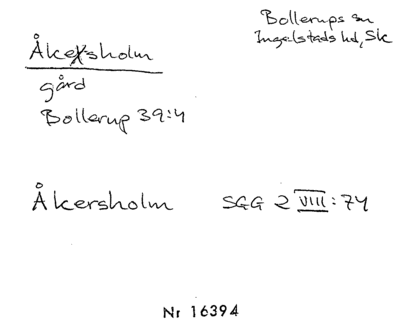 Bollerups sn
Ingelstads hd, Sk
Åkersholm
gård
Bollerup 39:4
Åkersholm SGG 2 VIII:74
Nr 16394